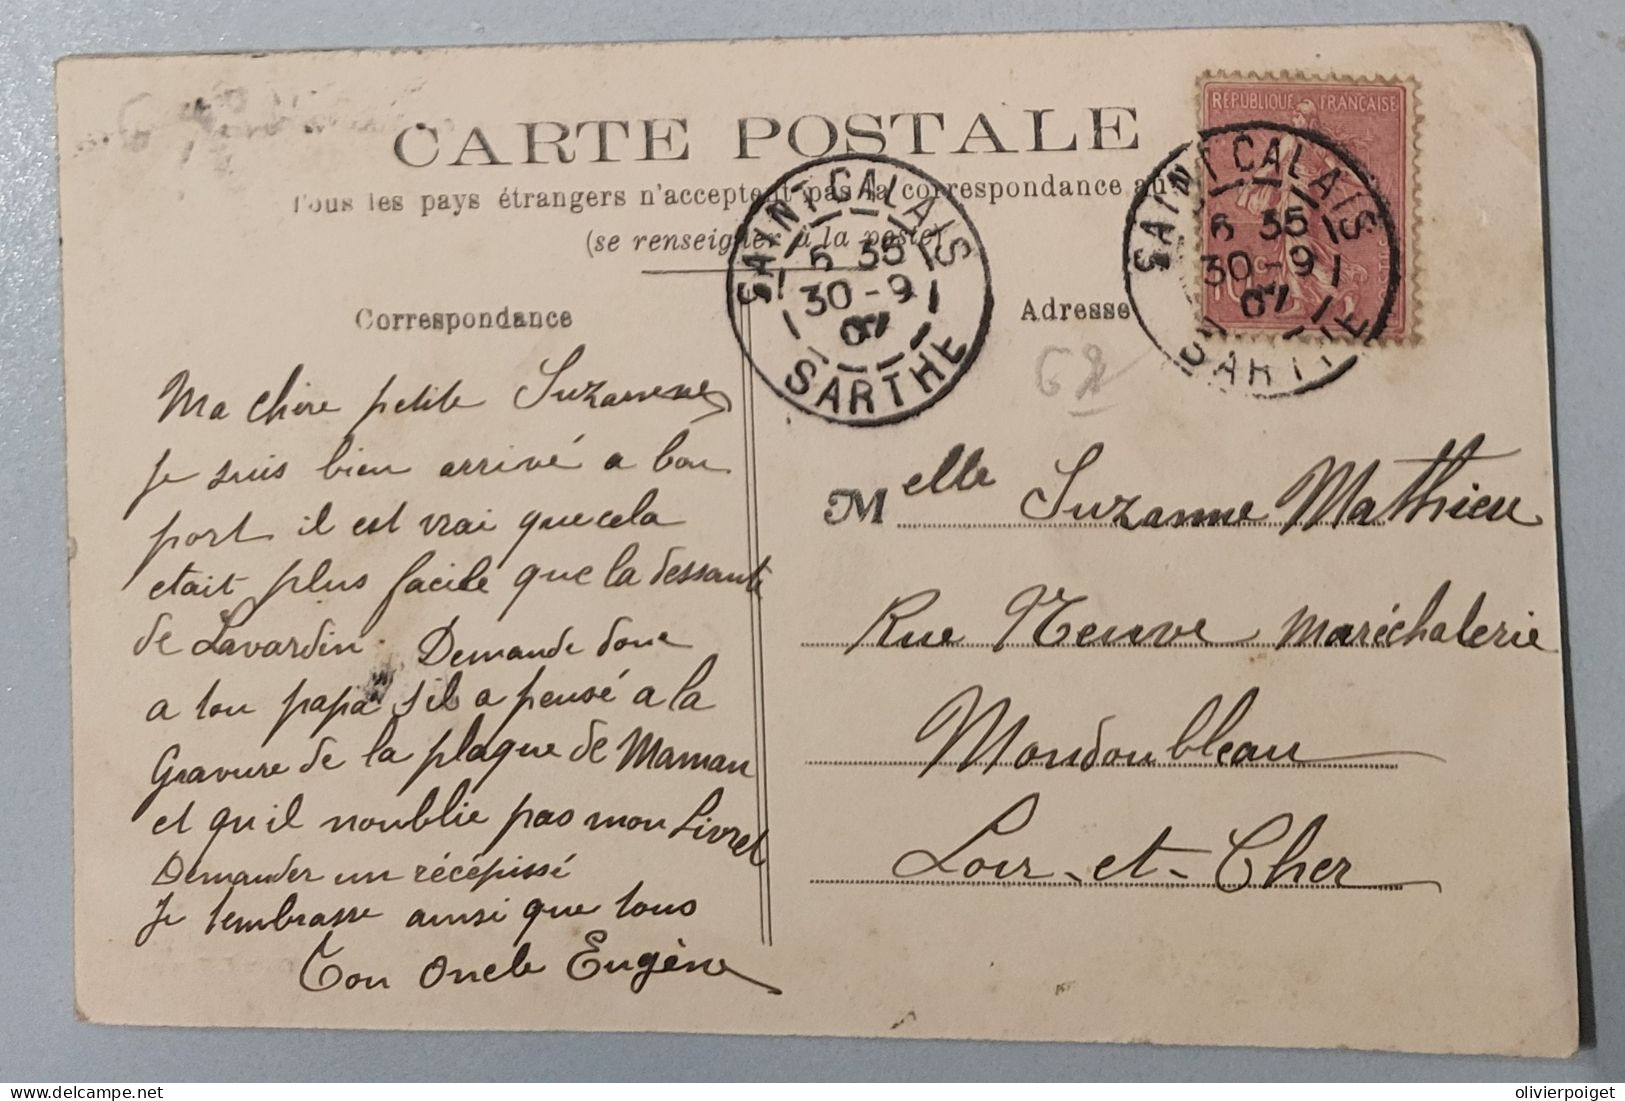 CARTE POSTALE
Tous les pays étrangers n'acceptent pas la correspondance au
(se renseigner à la poste)
Correspondance
Adresse
RÉPUBLIQUE FRANÇAISE
SAINT CALAIS
6 35
30-9
07
SARTHE
SAINT CALAIS
6 35
30-9
07
SARTHE
Ma chère petite Suzanne
Je suis bien arrivé a bon
port il est vrai que cela
etait plus facile que la dessante
de Lavardin. Demande donc
a ton papa s'il a pensé a la
Gravure de la plaque de Maman
et qu'il noublie pas mon Livret
Demander un récépissé
Je tembrasse ainsi que tous
Ton Oncle Eugène
Melle Suzanne Mathieu
Rue Neuve Maréchalerie
Mondoubleau
Loir-et-Cher
olivierpoiget